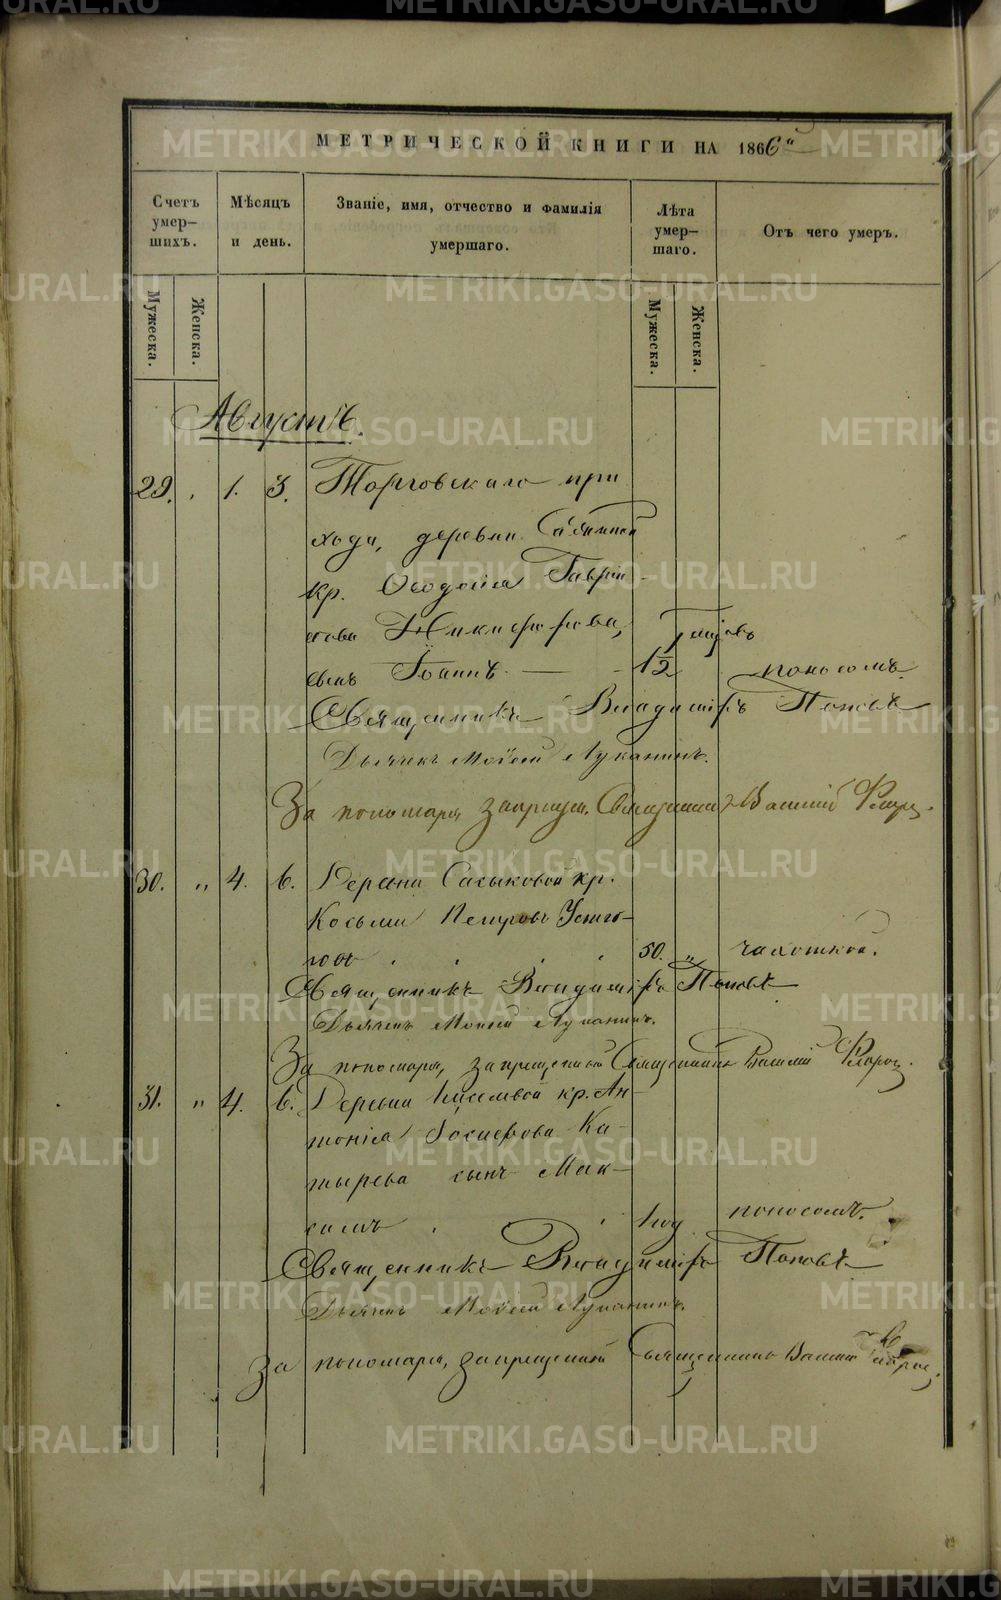 МЕТРИЧЕСКОЙ КНИГИ НА 1866й
Счетъ умер-шихъ.
Мѣсяцъ и день.
Званіе, имя, отчество и фамилія умершаго.
Лѣта умер-шаго.
Отъ чего умеръ.
Мужеска.
Женска.
Мужеска.
Женска.
Августъ.
29. 1. 3. Торговскаго при
хода, деревни
кр. Ѳеодосія Гаври
Никифорова,
сынъ Іоаннъ. — 1½ поносомъ.
Священникъ Владиміръ Поповъ
Дьячекъ Моѵсей Луканинъ.
За пономаря запрещ. Священникъ Василій Флоров.
30. „ 4. 6. Деревни Сасыковой кр.
Косьма Петровъ
50. „ чахоткой.
Священникъ Владиміръ Поповъ
Дьячекъ Моѵсей Луканинъ.
За пономаря, запрещенный Священникъ Василій Флоров.
31. „ 4. 6. Деревни кр. Ан-
тонія Іосифова Ка-
тырева сынъ Мак-
симъ 1 год поносомъ.
Священникъ Владиміръ Поповъ
Дьячекъ Моѵсей Луканинъ.
За пономаря, запрещенный Священникъ Василій Флоров.
METRIKI.GASO-URAL.RU